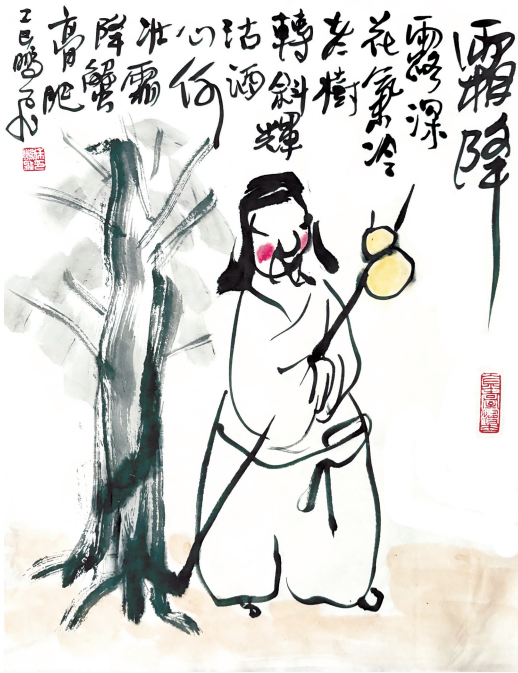 霜降
露深
花氣冷
老樹
轉斜輝
沽酒
心何
壯霜
降蟹
膏肥
乙巳鵬